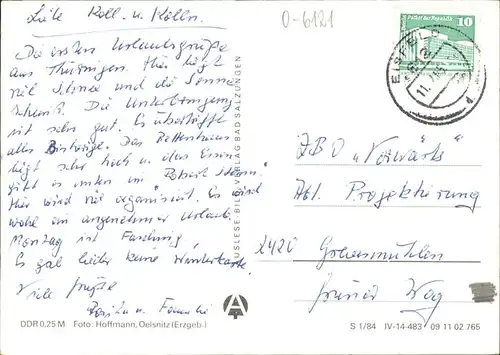 Liebe Koll. u. Kolln.
O-6121
Die ersten Urlaubsgrüße
aus Thüringen. Hier liegt
viel Schnee und die Sonne
scheint. Die Unterbringung
ist sehr gut. Es übertrifft
alles Bisherige. Das Bettenhaus
liegt sehr hoch u. das Essen
gibt es unten im
Hier wird viel organisiert. Es wird
wohl ein angenehmer Urlaub.
Montag ist Fasching.
Es gab leider keine Winterkarte
Viele Grüße
u. Familie
10
EISFELD
ZBO "Vorwärts"
Abt. Projektierung
2420 Grevesmühlen
Grüner Weg
AUSLESE-BILD-VERLAG BAD SALZUNGEN
DDR 0,25 M Foto: Hoffmann, Oelsnitz (Erzgeb.)
S 1/84 IV-14-483 09 11 02 765